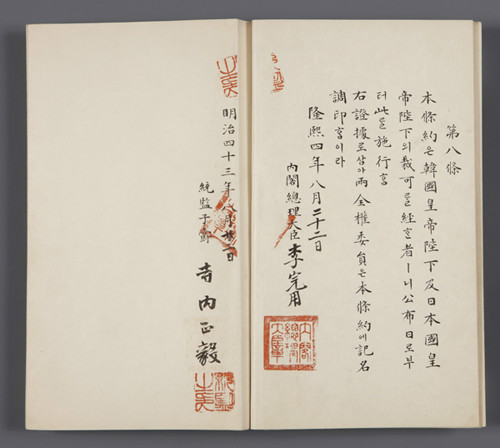 第八條
本條約은韓國皇帝陛下及日本國皇
帝陛下의裁可를經ᄒᆞᆫ者ㅣ니公布日로부
터此를施行홈
右證據로삼아兩全權委員은本條約에記名
調印홈이라
隆熙四年八月二十二日
內閣總理大臣李完用
內閣總理大臣章
明治四十三年八月二十二日
統監子爵 寺內正毅
統監之印